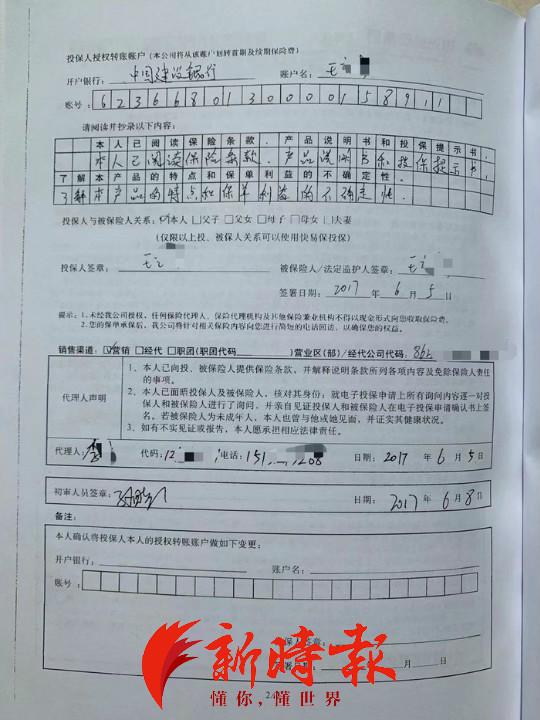 投保人授权转账账户（本公司将从该账户划转首期及续期保险费）
开户银行：中国建设银行 账户名：王
账号：623668130000158911
请阅读并抄录以下内容：
本人已阅读保险条款、产品说明书和投保提示书，
本人已阅读保险条款、产品说明书和投保提示书，
了解本产品的特点和保单利益的不确定性。
了解本产品的特点和保单利益的不确定性。
投保人与被保险人关系：☑本人 □父子 □父女 □母子 □母女 □夫妻
（仅限以上投、被保人关系可以使用快易保投保）
投保人签章：王 被保险人/法定监护人签章：王
签署日期：2017 年 6 月 5 日
提示：1.未经我公司授权，任何保险代理人、保险代理机构及其他保险兼业机构不得以现金形式向您收取保险费。
2.您的保单承保后，我公司将针对相关保险内容向您进行简短的电话回访，以确保您的权益。
销售渠道：☑营销 □经代 □职团(职团代码 )营业区(部)/经代公司代码：
代理人声明
1. 本人已向投、被保险人提供保险条款，并解释说明条款所列各项内容及免除保险人责任
的事项。
2. 本人已面晤投保人及被保险人，核对其身份；就电子投保申请上所有询问内容逐一对投
保人和被保险人进行了询问，并亲自见证投保人和被保险人在电子投保申请确认书上签
名。若被保险人为未成年人，本人也曾与他或她见面，并证实其健康状况。
3. 如有不实见证或报告，本人愿承担相应法律责任。
代理人：李 代码：12 电话：151 1208 日期：2017 年 6 月 5 日
初审人员签章： 日期：2017 年 6 月 8 日
备注：
本人确认将投保人本人的授权转账账户做如下变更：
开户银行： 账户名：
账号：
保人签章：
月 日
新時報
懂你，懂世界